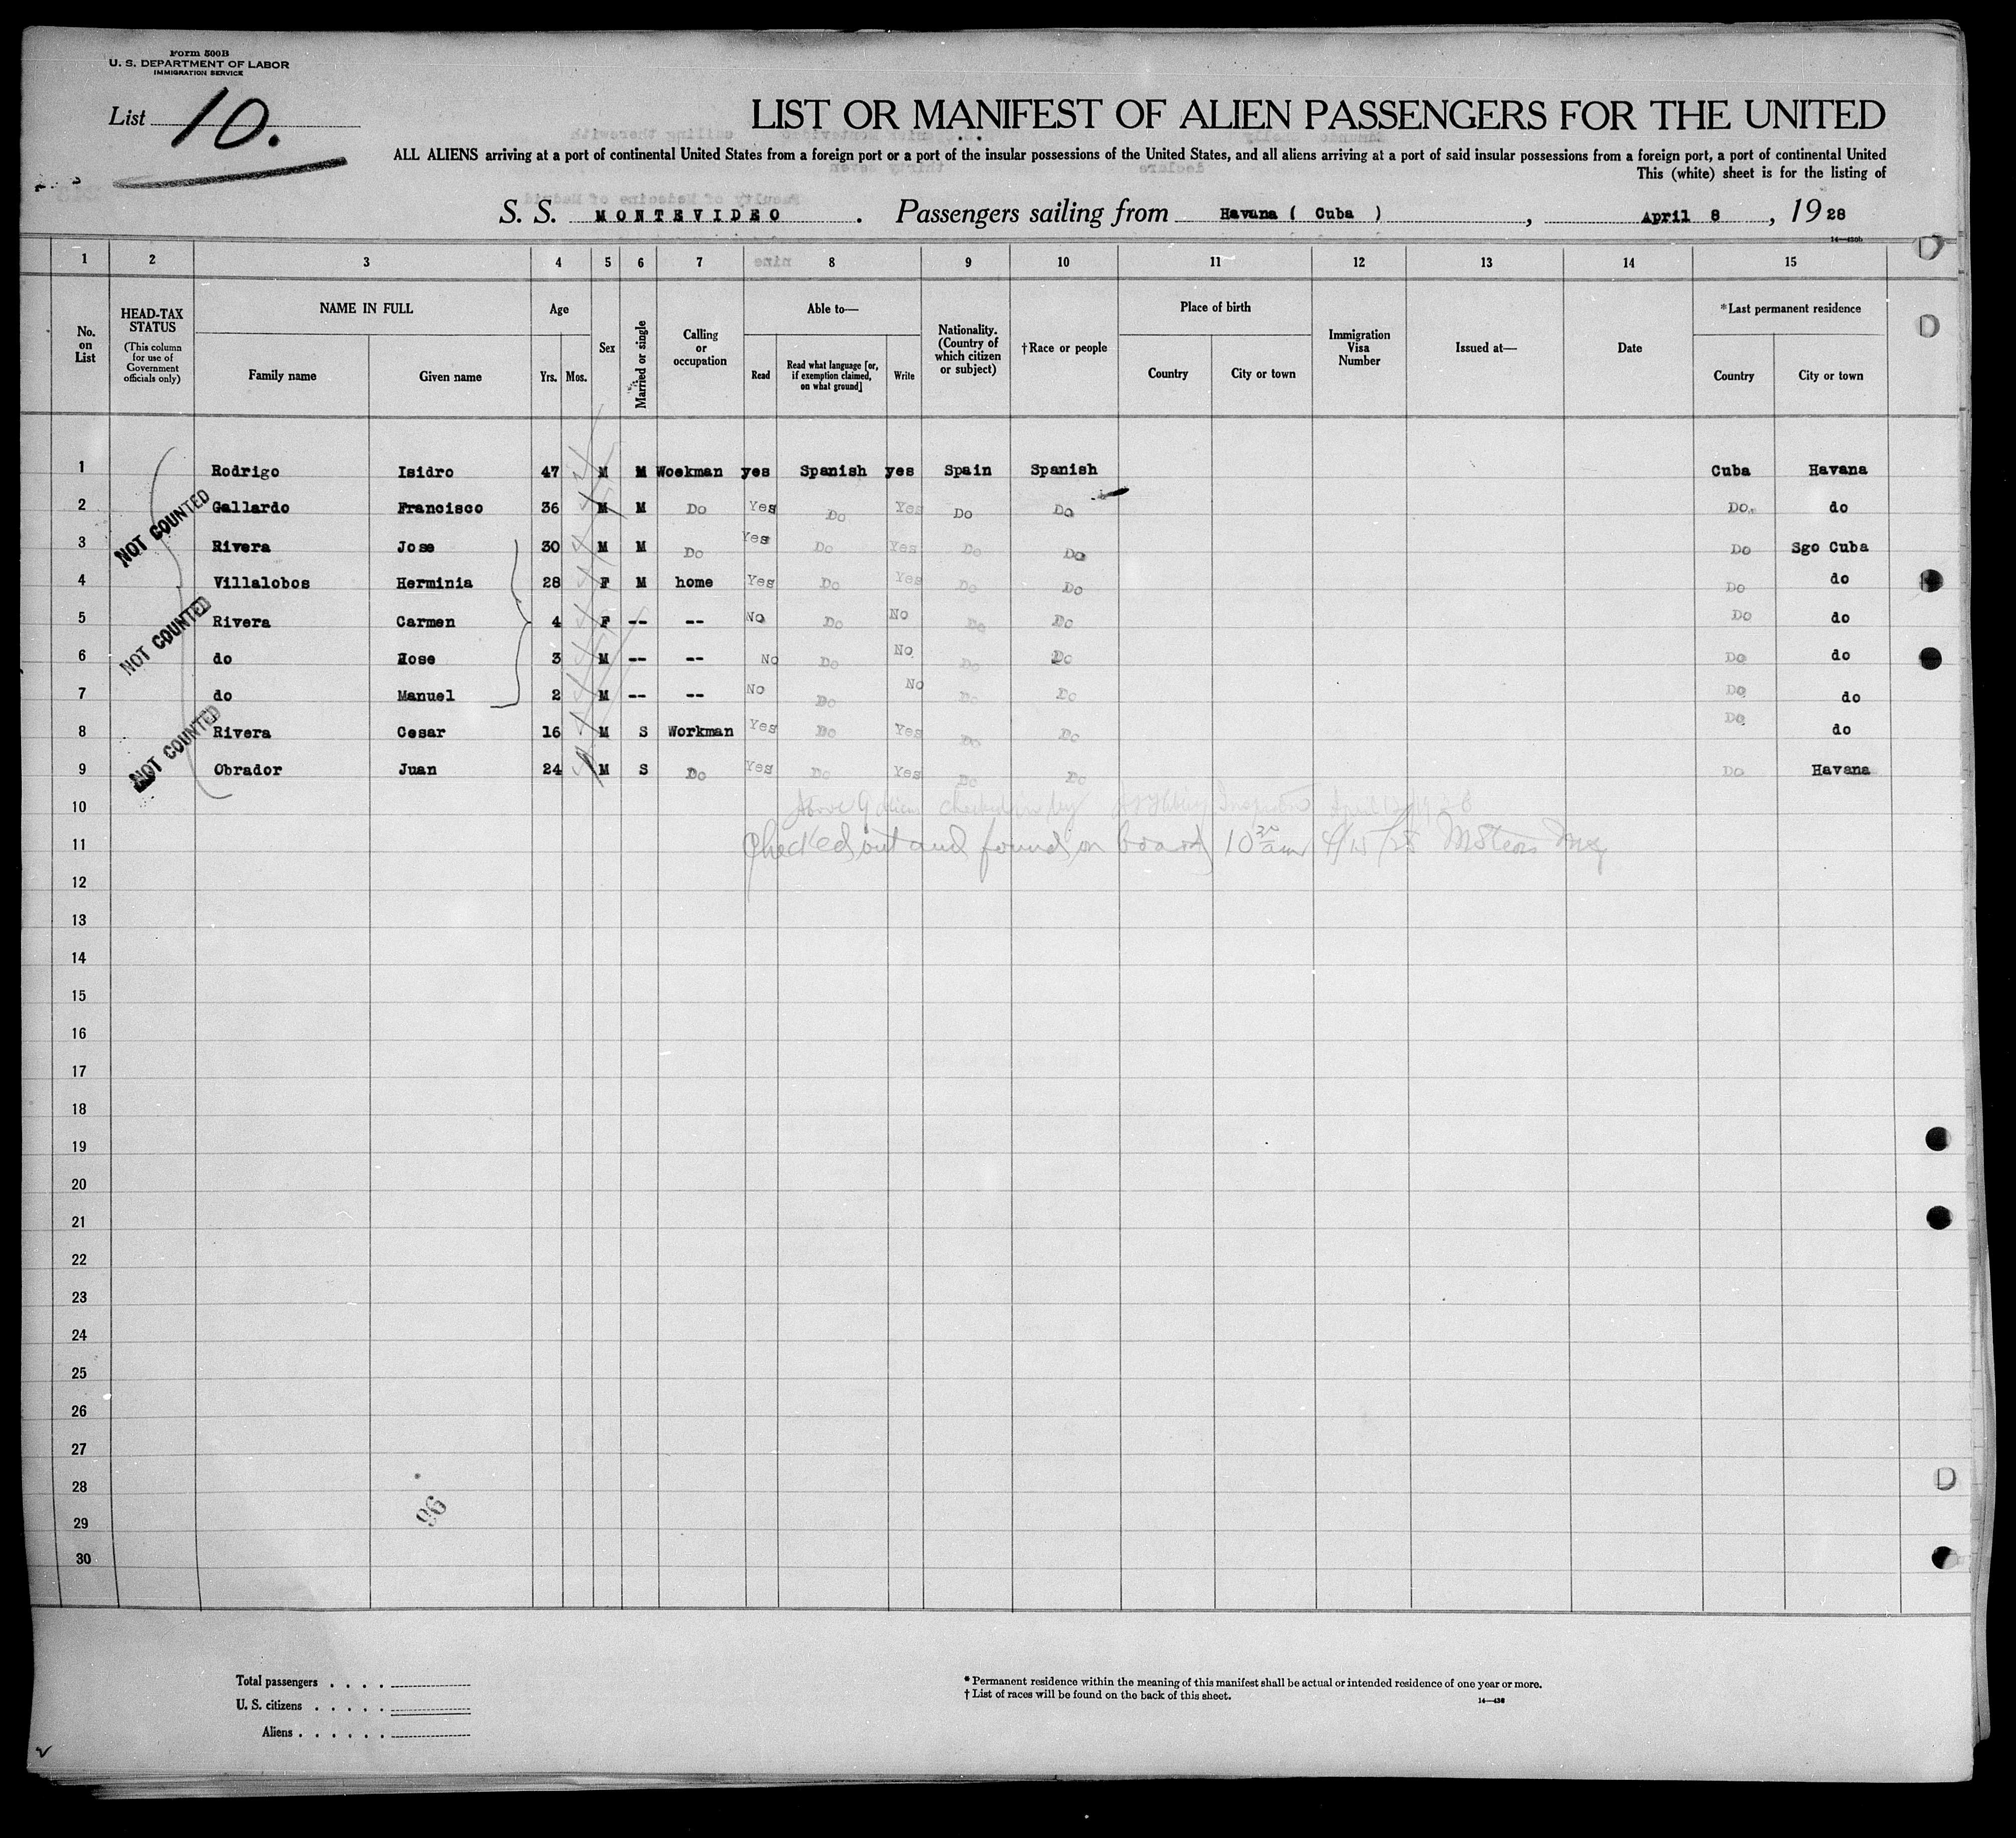 Form 500B
U. S. DEPARTMENT OF LABOR
IMMIGRATION SERVICE
List 10.
LIST OR MANIFEST OF ALIEN PASSENGERS FOR THE UNITED
ALL ALIENS arriving at a port of continental United States from a foreign port or a port of the insular possessions of the United States, and all aliens arriving at a port of said insular possessions from a foreign port, a port of continental United
This (white) sheet is for the listing of
S. S. MONTEVIDEO . Passengers sailing from Havana ( Cuba ) , April 8 , 1928
14—430b
1 2 3 4 5 6 7 8 9 10 11 12 13 14 15
No. on List
HEAD-TAX STATUS (This column for use of Government officials only)
NAME IN FULL
Family name Given name
Age
Yrs. Mos.
Sex
Married or single
Calling or occupation
Able to—
Read Read what language [or, if exemption claimed, on what ground] Write
Nationality. (Country of which citizen or subject)
†Race or people
Place of birth
Country City or town
Immigration Visa Number
Issued at—
Date
*Last permanent residence
Country City or town
1 Rodrigo Isidro 47 M M Woekman yes Spanish yes Spain Spanish Cuba Havana
2 Gallardo Francisco 36 M M Do Yes Do Yes Do Do Do. do
3 Rivera Jose 30 M M Do Yes Do Yes Do Do Do Sgo Cuba
4 Villalobos Herminia 28 F M home Yes Do Yes Do Do Do do
5 Rivera Carmen 4 F -- -- No Do No Do Do Do do
6 do Jose 3 M -- -- No Do No Do Do Do do
7 do Manuel 2 M -- -- No Do No Do Do Do do
8 Rivera Cesar 16 M S Workman Yes Do Yes Do Do Do do
9 Obrador Juan 24 M S Do Yes Do Yes Do Do Do Havana
NOT COUNTED
NOT COUNTED
NOT COUNTED
10 Above 9 aliens checked by Inspector April
11 Checked out and found on board 10 30 am 4/15/28
12
13
14
15
16
17
18
19
20
21
22
23
24
25
26
27
28
29
30
96
Total passengers . . . .
U. S. citizens . . . . .
Aliens . . . . . .
* Permanent residence within the meaning of this manifest shall be actual or intended residence of one year or more.
† List of races will be found on the back of this sheet.